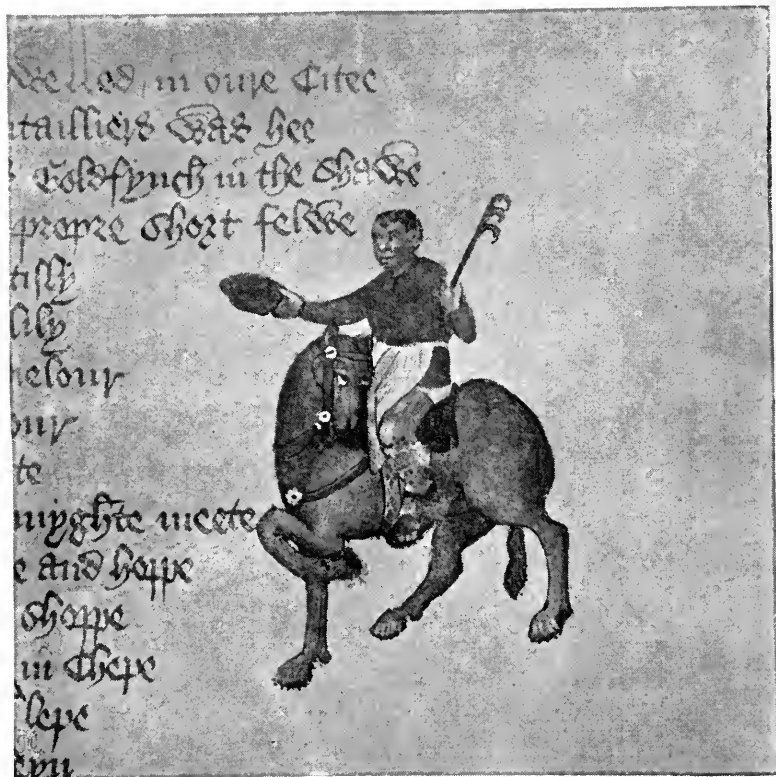 dwelled in oure Citee
tailliers was hee
Goldfynch in the shawe
propre short felawe
tisly
lily
helour
our
te
myghte meete
e and hoppe
shoppe
in Chepe
lepe
eyn